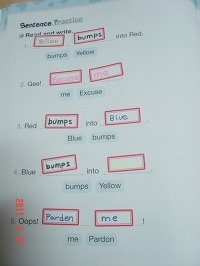 Sentence Practice
Read and write.
1. Yellow bumps into Red.
bumps Yellow
2. Gee! Excuse me
me Excuse
3. Red bumps into Blue.
Blue bumps
4. Blue bumps into
bumps Yellow
5. Oops! Parden me !
me Pardon